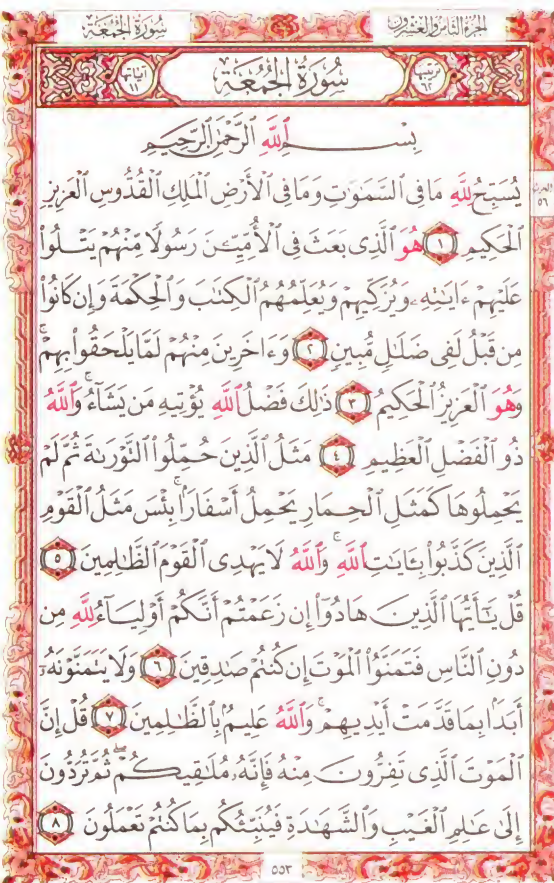 الجزء الثامن والعشرون
سورة الجمعة
ترتيبها ٦٢
سُورَةُ الجُمُعَةِ
آياتها ١١
بِسْمِ ٱللَّهِ ٱلرَّحْمَٰنِ ٱلرَّحِيمِ
يُسَبِّحُ لِلَّهِ مَا فِى ٱلسَّمَٰوَٰتِ وَمَا فِى ٱلْأَرْضِ ٱلْمَلِكِ ٱلْقُدُّوسِ ٱلْعَزِيزِ
ٱلْحَكِيمِ ١ هُوَ ٱلَّذِى بَعَثَ فِى ٱلْأُمِّيِّـۧنَ رَسُولًا مِّنْهُمْ يَتْلُوا۟
عَلَيْهِمْ ءَايَٰتِهِۦ وَيُزَكِّيهِمْ وَيُعَلِّمُهُمُ ٱلْكِتَٰبَ وَٱلْحِكْمَةَ وَإِن كَانُوا۟
مِن قَبْلُ لَفِى ضَلَٰلٍ مُّبِينٍ ٢ وَءَاخَرِينَ مِنْهُمْ لَمَّا يَلْحَقُوا۟ بِهِمْ ۚ
وَهُوَ ٱلْعَزِيزُ ٱلْحَكِيمُ ٣ ذَٰلِكَ فَضْلُ ٱللَّهِ يُؤْتِيهِ مَن يَشَآءُ ۚ وَٱللَّهُ
ذُو ٱلْفَضْلِ ٱلْعَظِيمِ ٤ مَثَلُ ٱلَّذِينَ حُمِّلُوا۟ ٱلتَّوْرَىٰةَ ثُمَّ لَمْ
يَحْمِلُوهَا كَمَثَلِ ٱلْحِمَارِ يَحْمِلُ أَسْفَارًۢا ۚ بِئْسَ مَثَلُ ٱلْقَوْمِ
ٱلَّذِينَ كَذَّبُوا۟ بِـَٔايَٰتِ ٱللَّهِ ۚ وَٱللَّهُ لَا يَهْدِى ٱلْقَوْمَ ٱلظَّٰلِمِينَ ٥
قُلْ يَٰٓأَيُّهَا ٱلَّذِينَ هَادُوٓا۟ إِن زَعَمْتُمْ أَنَّكُمْ أَوْلِيَآءُ لِلَّهِ مِن
دُونِ ٱلنَّاسِ فَتَمَنَّوُا۟ ٱلْمَوْتَ إِن كُنتُمْ صَٰدِقِينَ ٦ وَلَا يَتَمَنَّوْنَهُۥٓ
أَبَدًۢا بِمَا قَدَّمَتْ أَيْدِيهِمْ ۚ وَٱللَّهُ عَلِيمٌۢ بِٱلظَّٰلِمِينَ ٧ قُلْ إِنَّ
ٱلْمَوْتَ ٱلَّذِى تَفِرُّونَ مِنْهُ فَإِنَّهُۥ مُلَٰقِيكُمْ ۖ ثُمَّ تُرَدُّونَ
إِلَىٰ عَٰلِمِ ٱلْغَيْبِ وَٱلشَّهَٰدَةِ فَيُنَبِّئُكُم بِمَا كُنتُمْ تَعْمَلُونَ ٨
الحزب
٥٦
٥٥٣